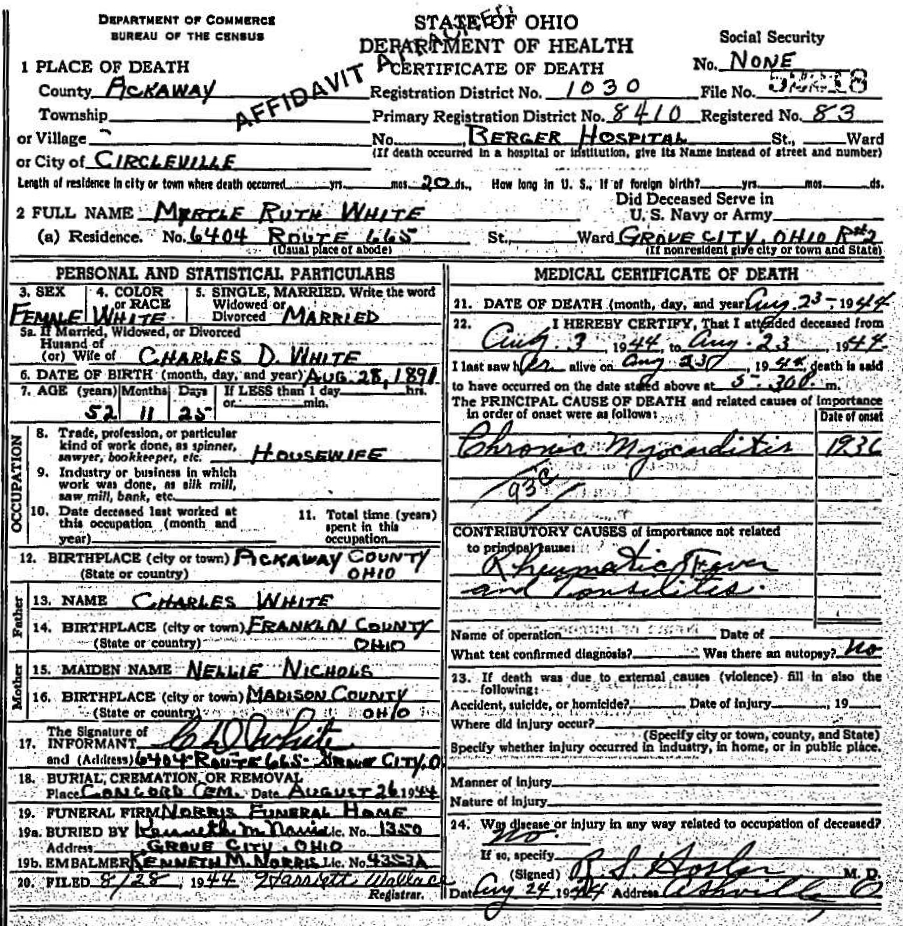 DEPARTMENT OF COMMERCE
BUREAU OF THE CENSUS
STATE OF OHIO
DEPARTMENT OF HEALTH
CERTIFICATE OF DEATH
AFFIDAVIT ATTACHED
Social Security
No. NONE
1 PLACE OF DEATH
County PICKAWAY
Registration District No. 1030 File No.
Township Primary Registration District No. 8410 Registered No. 83
or Village No. BERGER HOSPITAL St., Ward
or City of CIRCLEVILLE (If death occurred in a hospital or institution, give its Name instead of street and number)
Length of residence in city or town where death occurred yrs. mos. 20 ds. How long in U. S., if of foreign birth? yrs. mos. ds.
2 FULL NAME MYRTLE RUTH WHITE Did Deceased Serve in U. S. Navy or Army
(a) Residence. No. 6404 ROUTE 665 St., Ward GROVE CITY, OHIO
(Usual place of abode) (If nonresident give city or town and State)
PERSONAL AND STATISTICAL PARTICULARS
3. SEX FEMALE 4. COLOR or RACE WHITE 5. SINGLE, MARRIED. Write the word Widowed or Divorced MARRIED
5a. If Married, Widowed, or Divorced
Husand of
(or) Wife of CHARLES D. WHITE
6. DATE OF BIRTH (month, day, and year) AUG. 28, 1891
7. AGE (years) 52 Months 11 Days 25 If LESS than 1 day hrs. or min.
OCCUPATION
8. Trade, profession, or particular
kind of work done, as spinner,
sawyer, bookkeeper, etc. HOUSEWIFE
9. Industry or business in which
work was done, as silk mill,
saw mill, bank, etc.
10. Date deceased last worked at
this occupation (month and
year)
11. Total time (years)
spent in this
occupation
12. BIRTHPLACE (city or town) PICKAWAY COUNTY
(State or country) OHIO
Father
13. NAME CHARLES WHITE
14. BIRTHPLACE (city or town) FRANKLIN COUNTY
(State or country) OHIO
Mother
15. MAIDEN NAME NELLIE NICHOLS
16. BIRTHPLACE (city or town) MADISON COUNTY
(State or country) OHIO
17. The Signature of
INFORMANT C D White
and (Address) 6404 ROUTE 665 GROVE CITY, O
18. BURIAL, CREMATION, OR REMOVAL
Place CONCORD CEM. Date AUGUST 26 1944
19. FUNERAL FIRM NORRIS FUNERAL HOME
19a. BURIED BY Kenneth M Norris Lic. No. 1350
Address GROVE CITY, OHIO
19b. EMBALMER KENNETH M. NORRIS Lic. No. 4353A
20. FILED 8/28, 1944 Harriett Wallace
Registrar.
MEDICAL CERTIFICATE OF DEATH
21. DATE OF DEATH (month, day, and year) Aug. 23-1944
22. I HEREBY CERTIFY, That I attended deceased from
Aug 3 1944 to Aug. 23 1944
I last saw her alive on Aug 23, 1944, death is said
to have occurred on the date stated above at m.
The PRINCIPAL CAUSE OF DEATH and related causes of importance
in order of onset were as follows: Date of onset
Chronic Myocarditis 1936
93c
CONTRIBUTORY CAUSES of importance not related
to principal cause:
Rheumatic Fever
and Tonsilitis.
Name of operation Date of
What test confirmed diagnosis? Was there an autopsy? No
23. If death was due to external causes (violence) fill in also the
following:
Accident, suicide, or homicide? Date of injury , 19
Where did injury occur?
(Specify city or town, county, and State)
Specify whether injury occurred in industry, in home, or in public place.
Manner of injury
Nature of injury
24. Was disease or injury in any way related to occupation of deceased?
No
If so, specify
(Signed) R. S. Hosler M. D.
Date Aug 24 1944 Address Ashville, O